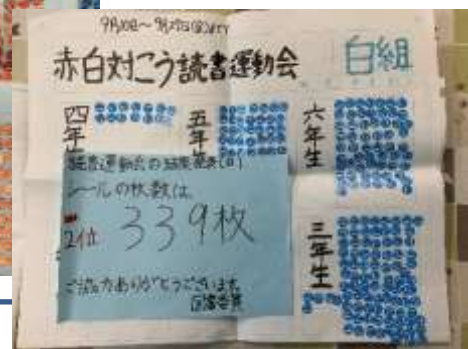 赤白対こう読書運動会 白組
四年生
五年生
六年生
三年生
読書運動会の結果発表(白)
シールの枚数は
2位 339枚
ご協力ありがとうございます
図書委員